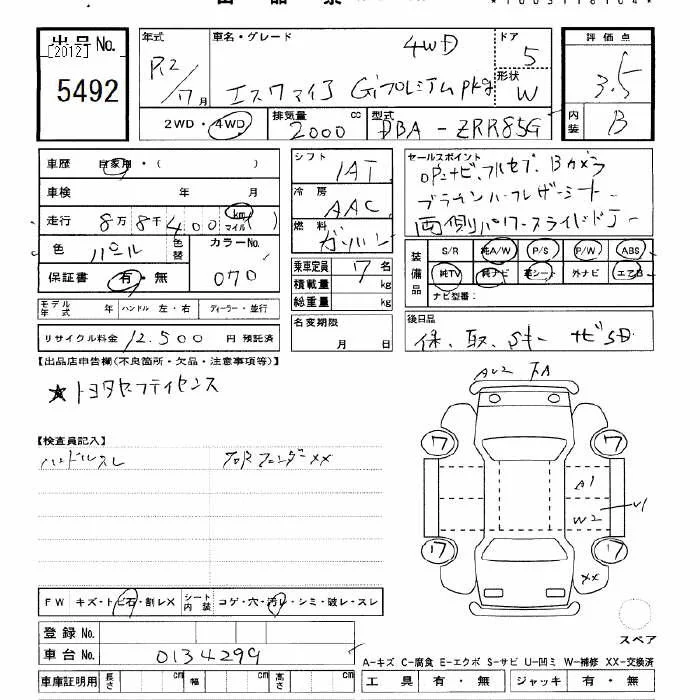 出品No. [2012] 5492
年式 R2/7月
車名・グレード 4WD
エスクァイア Giプレミアムpkg
ドア 5
形状 W
評価点 3.5
内装 B
2WD・4WD
排気量 2000 cc
型式 DBA-ZRR85G
車歴 自家用・( )
車検 年 月
走行 8万8千400 km マイル ( )
色 パール 色替
カラーNo. 070
保証書 有・無
モデル年式 年 ハンドル 左・右 ディーラー・並行
リサイクル料金 12,500 円 預託済
シフト IAT
冷房 AAC
燃料 ガソリン
乗車定員 7 名
積載量 kg
総重量 kg
名変期限 月 日
セールスポイント
OPナビ、フルセグ、Bカメラ
ブラウンハーフレザーシート
両側パワースライドドアー
装備品 S/R 純A/W P/S P/W ABS
純TV 純ナビ 革シート 外ナビ エアB
ナビ型番:
後日品
保、取、Sキー ナビSD
【出品店申告欄(不良箇所・欠品・注意事項等)】
★トヨタセーフティセンス
【検査員記入】
ハンドルスレ
右Rフェンダーxx
AU2
ワ ワ
A1
W2
ワ ワ
xx
FW キズ・トビ石・割レX シート内装 コゲ・穴・汚レ・シミ・破レ・スレ
登録No.
車台No. 0134299
車庫証明用 長さ cm 幅 cm 高さ cm
スペア
A-キズ C-腐食 E-エクボ S-サビ U-凹ミ W-補修 XX-交換済
工具 有・無 ジャッキ 有・無